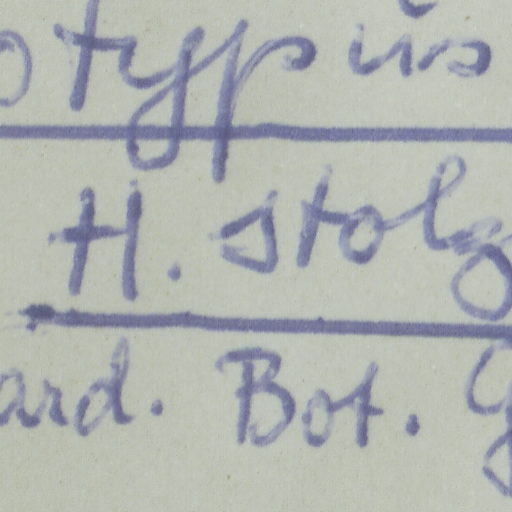 otypus
H. Stolz
ard. Bot. G